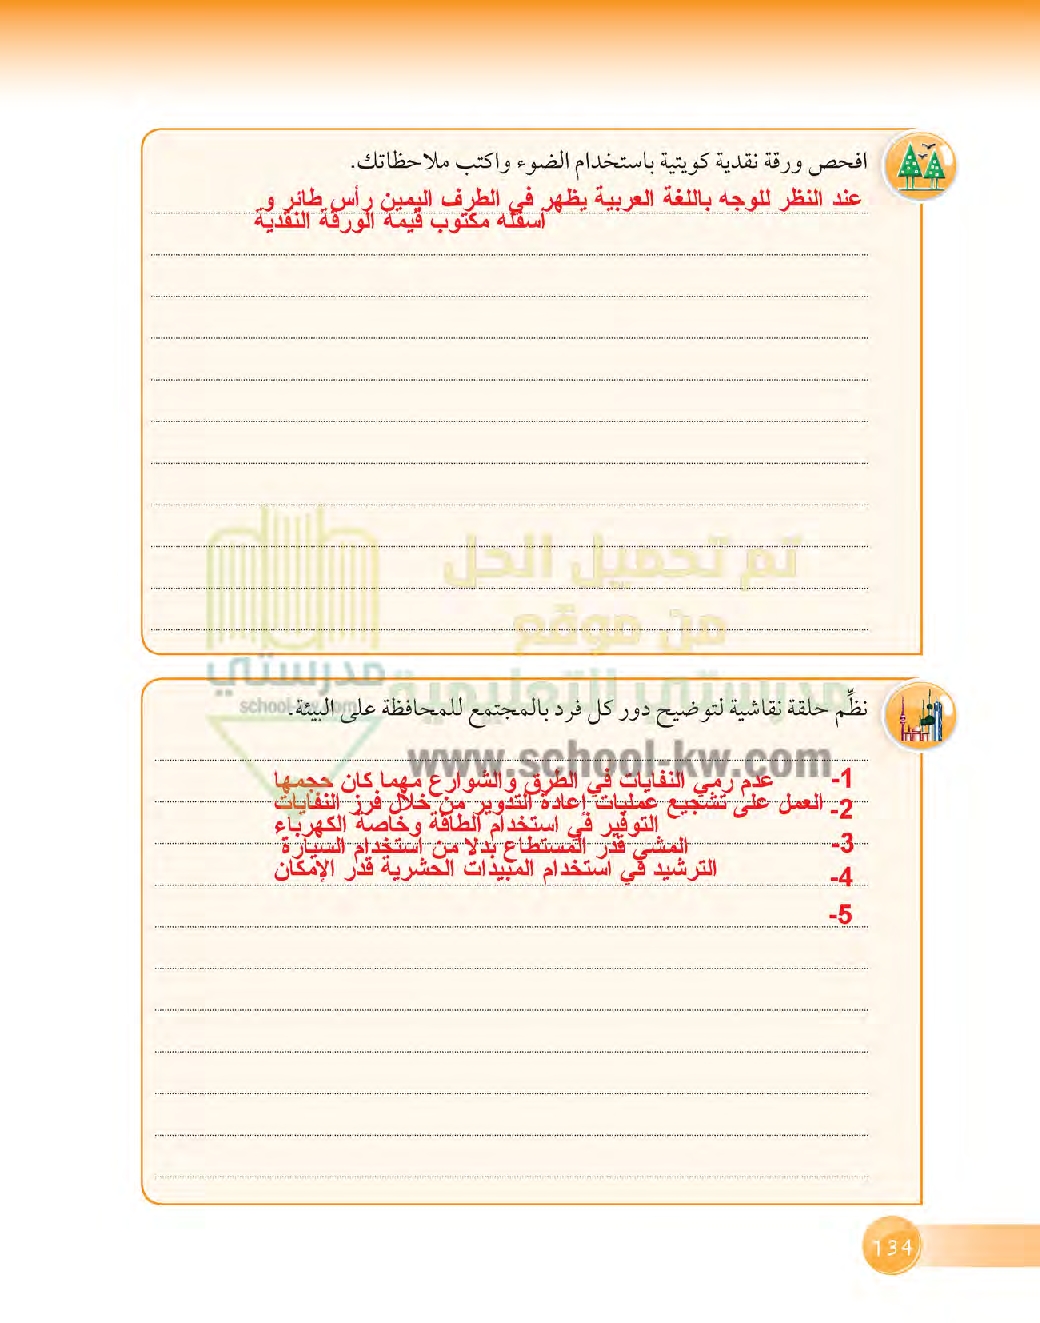 افحص ورقة نقدية كويتية باستخدام الضوء واكتب ملاحظاتك.
عند النظر للوجه باللغة العربية يظهر في الطرف اليمين رأس طائر و
أسفله مكتوب قيمة الورقة النقدية
تم تحميل الحل
من موقع
مدرستي التعليمية
مدرستي
school-kw.com
www.school-kw.com
نظِّم حلقة نقاشية لتوضيح دور كل فرد بالمجتمع للمحافظة على البيئة.
1- عدم رمي النفايات في الطرق والشوارع مهما كان حجمها
2- العمل على تشجيع عمليات إعادة التدوير من خلال فرز النفايات
التوفير في استخدام الطاقة وخاصة الكهرباء
3- المشي قدر المستطاع بدلا من استخدام السيارة
4- الترشيد في استخدام المبيدات الحشرية قدر الإمكان
5-
134